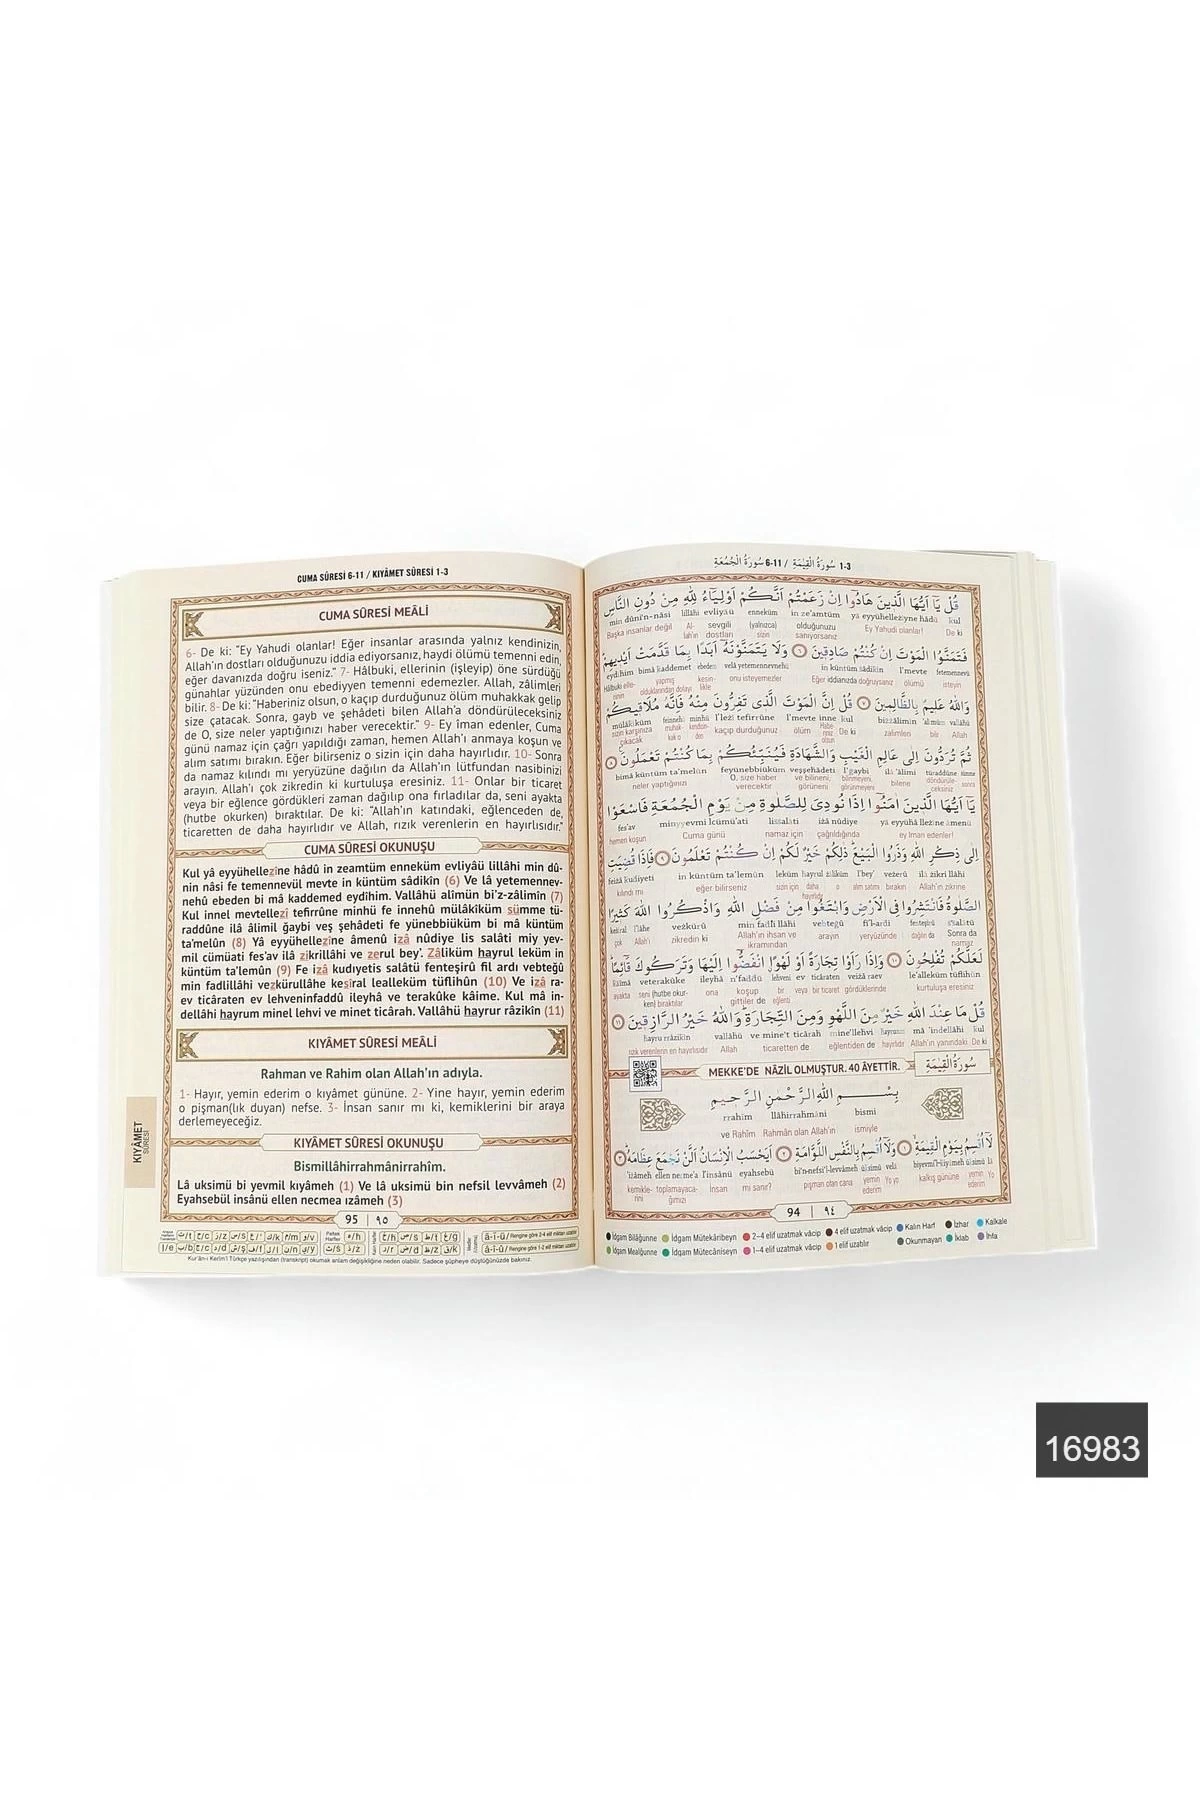 CUMA SÛRESİ 6-11 / KIYÂMET SÛRESİ 1-3
CUMA SÛRESİ MEÂLİ
6- De ki: "Ey Yahudi olanlar! Eğer insanlar arasında yalnız kendinizin,
Allah'ın dostları olduğunuzu iddia ediyorsanız, haydi ölümü temenni edin,
eğer davanızda doğru iseniz." 7- Hâlbuki, ellerinin (işleyip) öne sürdüğü
günahlar yüzünden onu ebediyyen temenni edemezler. Allah, zâlimleri
bilir. 8- De ki: "Haberiniz olsun, o kaçıp durduğunuz ölüm muhakkak gelip
size çatacak. Sonra, gayb ve şehâdeti bilen Allah'a döndürüleceksiniz
de O, size neler yaptığınızı haber verecektir." 9- Ey îman edenler, Cuma
günü namaz için çağrı yapıldığı zaman, hemen Allah'ı anmaya koşun ve
alım satımı bırakın. Eğer bilirseniz o sizin için daha hayırlıdır. 10- Sonra
da namaz kılındı mı yeryüzüne dağılın da Allah'ın lütfundan nasibinizi
arayın. Allah'ı çok zikredin ki kurtuluşa eresiniz. 11- Onlar bir ticaret
veya bir eğlence gördükleri zaman dağılıp ona fırladılar da, seni ayakta
(hutbe okurken) bıraktılar. De ki: "Allah'ın katındaki, eğlenceden de,
ticaretten de daha hayırlıdır ve Allah, rızık verenlerin en hayırlısıdır."
CUMA SÛRESİ OKUNUŞU
Kul yâ eyyühellezîne hâdû in zeamtüm enneküm evliyâü lillâhi min dû-
nin nâsi fe temennevül mevte in küntüm sâdikîn (6) Ve lâ yetemennev-
nehû ebeden bi mâ kaddemed eydîhim. Vallâhü alîmün bi'z-zâlimîn (7)
Kul innel mevtellezî tefirrûne minhü fe innehû mülâkîküm sümme tü-
raddûne ilâ âlimil ğaybi veş şehâdeti fe yünebbiüküm bi mâ küntüm
ta'melûn (8) Yâ eyyühellezîne âmenû izâ nûdiye lis salâti miy yev-
mil cümüati fes'av ilâ zikrillâhi ve zerul bey'. Zâliküm hayrul leküm in
küntüm ta'lemûn (9) Fe izâ kudıyetis salâtü fenteşirû fil ardı vebteğû
min fadlillâhi vezkürullâhe kesîral lealleküm tüflihûn (10) Ve izâ ra-
ev ticâraten ev lehveninfaddû ileyhâ ve terakûke kâime. Kul mâ in-
dellâhi hayrum minel lehvi ve minet ticârah. Vallâhü hayrur râzikîn (11)
KIYÂMET SÛRESİ MEÂLİ
Rahman ve Rahim olan Allah'ın adıyla.
1- Hayır, yemin ederim o kıyâmet gününe. 2- Yine hayır, yemin ederim
o pişman(lık duyan) nefse. 3- İnsan sanır mı ki, kemiklerini bir araya
derlemeyeceğiz.
KIYÂMET SÛRESİ OKUNUŞU
Bismillâhirrahmânirrahîm.
Lâ uksimü bi yevmil kıyâmeh (1) Ve lâ uksimü bin nefsil levvâmeh (2)
Eyahsebül insânü ellen necmea ızâmeh (3)
95 | ٩٥
KIYÂMET
SÛRESİ
Kur'ân-ı Kerim'i Türkçe yazılışından (transkript) okumak anlam değişikliğine neden olabilir. Sadece şüpheye düştüğünüzde bakınız.
1-3 سُورَةُ الْقِيٰمَةِ / 6-11 سُورَةُ الْجُمُعَةِ
قُلْ يَٓا اَيُّهَا الَّذ۪ينَ هَادُٓوا اِنْ زَعَمْتُمْ اَنَّكُمْ اَوْلِيَٓاءُ لِلّٰهِ مِنْ دُونِ النَّاسِ
min dûni'n-nâsi lillâhi evliyâü enneküm in ze'amtüm yâ eyyühellezîyne hâdû kul
Başka insanlar değil Al- sevgili (yalnızca) olduğunuzu Ey Yahudi olanlar! De ki
lah'ın dostları sizin sanıyorsanız
فَتَمَنَّوُا الْمَوْتَ اِنْ كُنْتُمْ صَادِق۪ينَ ٦ وَلَا يَتَمَنَّوْنَهُٓ اَبَدًا بِمَا قَدَّمَتْ اَيْد۪يهِمْ
eydîhim bimâ kaddemet ebeden velâ yetemennevnehû in küntüm sâdikîn l'mevte fetemennevü
onu isteyemezler Eğer iddianızda doğruysanız ölümü isteyin
وَاللّٰهُ عَل۪يمٌ بِالظَّالِم۪ينَ ٧ قُلْ اِنَّ الْمَوْتَ الَّذ۪ي تَفِرُّونَ مِنْهُ فَاِنَّهُ مُلَاق۪يكُمْ
mülâkîküm feinnehû minhü l'lezî tefirrûne l'mevte inne kul bizzâlimîn 'alîmün vallâhü
kaçıp durduğunuz ölüm De ki zalimleri bilir Allah
ثُمَّ تُرَدُّونَ اِلٰى عَالِمِ الْغَيْبِ وَالشَّهَادَةِ فَيُنَبِّئُكُمْ بِمَا كُنْتُمْ تَعْمَلُونَ ٨
bimâ küntüm ta'melûn feyünebbiüküm veşşehâdeti l'gaybi ilâ 'âlimi türaddûne sümme
neler yaptığınızı O, size haber ve bilineni, bilinmeyeni, bilene
verecektir görüneni görünmeyeni
يَٓا اَيُّهَا الَّذ۪ينَ اٰمَنُٓوا اِذَا نُودِيَ لِلصَّلٰوةِ مِنْ يَوْمِ الْجُمُعَةِ فَاسْعَوْا
fes'av minyyevmi lcümü'ati lissalâti izâ nûdiye yâ eyyühâ llezîne âmenû
hemen koşun Cuma günü namaz için çağrıldığında ey İman edenler!
اِلٰى ذِكْرِ اللّٰهِ وَذَرُوا الْبَيْعَ ذٰلِكُمْ خَيْرٌ لَكُمْ اِنْ كُنْتُمْ تَعْلَمُونَ ٩ فَاِذَا قُضِيَتِ
feizâ kudiyeti in küntüm ta'lemûn leküm hayrul zâliküm l'bey' vezerû ilâ zikri llâhi
kılındı mı eğer bilirseniz sizin için daha o alım satımı bırakın Allah'ın zikrine
hayırlıdır
الصَّلٰوةُ فَانْتَشِرُوا فِي الْاَرْضِ وَابْتَغُوا مِنْ فَضْلِ اللّٰهِ وَاذْكُرُوا اللّٰهَ كَث۪يرًا
kesîral l'lâhe vezkürû min fadli llâhi vebtegû fi'l-ardi fenteşirû s'salâtü
çok Allah'ı zikredin ki Allah'ın ihsan ve arayın yeryüzünde dağılın da Sonra da
ikramından namaz
لَعَلَّكُمْ تُفْلِحُونَ ١٠ وَاِذَا رَاَوْا تِجَارَةً اَوْ لَهْوًا انْفَضُّٓوا اِلَيْهَا وَتَرَكُوكَ قَٓائِمًا
kâimâ veterakûke ileyhâ n'faddû lehveni ev ticâraten veizâ raev le'alleküm tüflihûn
ayakta seni (hutbe okur- ona koşup bir veya bir ticaret gördüklerinde kurtuluşa eresiniz
ken) bıraktılar gittiler de eğlenti
قُلْ مَا عِنْدَ اللّٰهِ خَيْرٌ مِنَ اللَّهْوِ وَمِنَ التِّجَارَةِ وَاللّٰهُ خَيْرُ الرَّازِق۪ينَ ١١
hayru rrâzikîn vallâhü ve mine't ticârah mine'llehvi hayrunm mâ 'indellâhi kul
rızık verenlerin en hayırlısıdır Allah ticaretten de eğlentiden de hayırlıdır Allah'ın yanındaki De ki
MEKKE'DE NÂZİL OLMUŞTUR. 40 ÂYETTİR.
سُورَةُ الْقِيٰمَةِ
بِسْمِ اللّٰهِ الرَّحْمٰنِ الرَّح۪يمِ
rrahîm llâhirrahmâni bismi
ve Rahîm Rahmân olan Allah'ın ismiyle
لَٓا اُقْسِمُ بِيَوْمِ الْقِيٰمَةِ ١ وَلَٓا اُقْسِمُ بِالنَّفْسِ اللَّوَّامَةِ ٢ اَيَحْسَبُ الْاِنْسَانُ اَلَّنْ نَجْمَعَ عِظَامَهُ ٣
'izâmeh ellen necme'a l'insânü eyahsebü bi'n-nefsi'l-levvâmeh
kemikle- toplamayaca- İnsan mı sanır? pişman olan cana yemin Yo yo kalkış gününe yemin
rini ğımızı ederim ederim
94 | ٩٤
İdgam Bilâğunne İdgam Mütekâribeyn 2–4 elif uzatmak vâcip 4 elif uzatmak vâcip Kalın Harf İzhar Kalkale
İdgam Mealğunne İdgam Mütecâniseyn 1–4 elif uzatmak vâcip 1 elif uzatılır Okunmayan İklab İhfa
16983